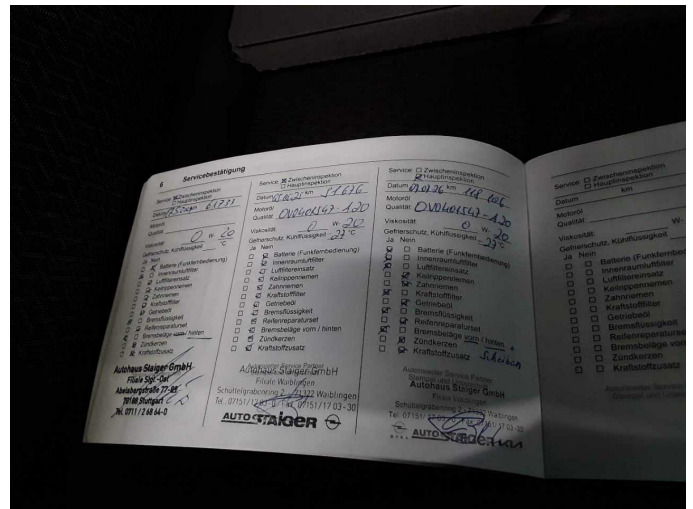 6 Servicebestätigung
Service ☒ Zwischeninspektion
☐ Hauptinspektion
Datum km
Motoröl
Qualität
Viskosität 0 W- 20
Gefrierschutz, Kühlflüssigkeit °C
Ja Nein
Batterie (Funkfernbedienung)
Innenraumluftfilter
Luftfiltereinsatz
Keilrippenriemen
Zahnriemen
Kraftstofffilter
Getriebeöl
Bremsflüssigkeit
Reifenreparaturset
Bremsbeläge vorn / hinten
Zündkerzen
Kraftstoffzusatz
Autohaus Staiger GmbH
70188 Stuttgart
Tel. 0711 / 2 68 64-0
Service ☒ Zwischeninspektion
☐ Hauptinspektion
Datum km 91 676
Motoröl
Qualität OV0401547-A20
Viskosität 0 W- 20
Gefrierschutz, Kühlflüssigkeit -27 °C
Ja Nein
Batterie (Funkfernbedienung)
Innenraumluftfilter
Luftfiltereinsatz
Keilrippenriemen
Zahnriemen
Kraftstofffilter
Getriebeöl
Bremsflüssigkeit
Reifenreparaturset
Bremsbeläge vorn / hinten
Zündkerzen
Kraftstoffzusatz
Autohaus Staiger GmbH
Filiale Waiblingen
Schüttelgrabenring 2 - 71332 Waiblingen
Tel. 07151/17 03-0 Fax 07151/17 03-30
AUTO STAIGER
Service ☐ Zwischeninspektion
☒ Hauptinspektion
Datum km 118 606
Motoröl
Qualität OV0401547-A20
Viskosität 0 W- 20
Gefrierschutz, Kühlflüssigkeit -27 °C
Ja Nein
Batterie (Funkfernbedienung)
Innenraumluftfilter
Luftfiltereinsatz
Keilrippenriemen
Zahnriemen
Kraftstofffilter
Getriebeöl
Bremsflüssigkeit
Reifenreparaturset
Bremsbeläge vorn / hinten +
Zündkerzen Scheiben
Kraftstoffzusatz
Autorisierter Service Partner
Stempel und Unterschrift
Autohaus Staiger GmbH
Filiale Waiblingen
Schüttelgrabenring 2 - 71332 Waiblingen
Tel. 07151/17 03-0 Fax 07151/17 03-30
OPEL AUTO STAIGER
Service ☐ Zwischeninspektion
☐ Hauptinspektion
Datum km
Motoröl
Qualität
Viskosität W-
Gefrierschutz, Kühlflüssigkeit
Ja Nein
Batterie (Funkfernbe
Innenraumluftfilter
Luftfiltereinsatz
Keilrippenriemen
Zahnriemen
Kraftstofffilter
Getriebeöl
Bremsflüssigkeit
Reifenreparaturset
Bremsbeläge vorn
Zündkerzen
Kraftstoffzusatz